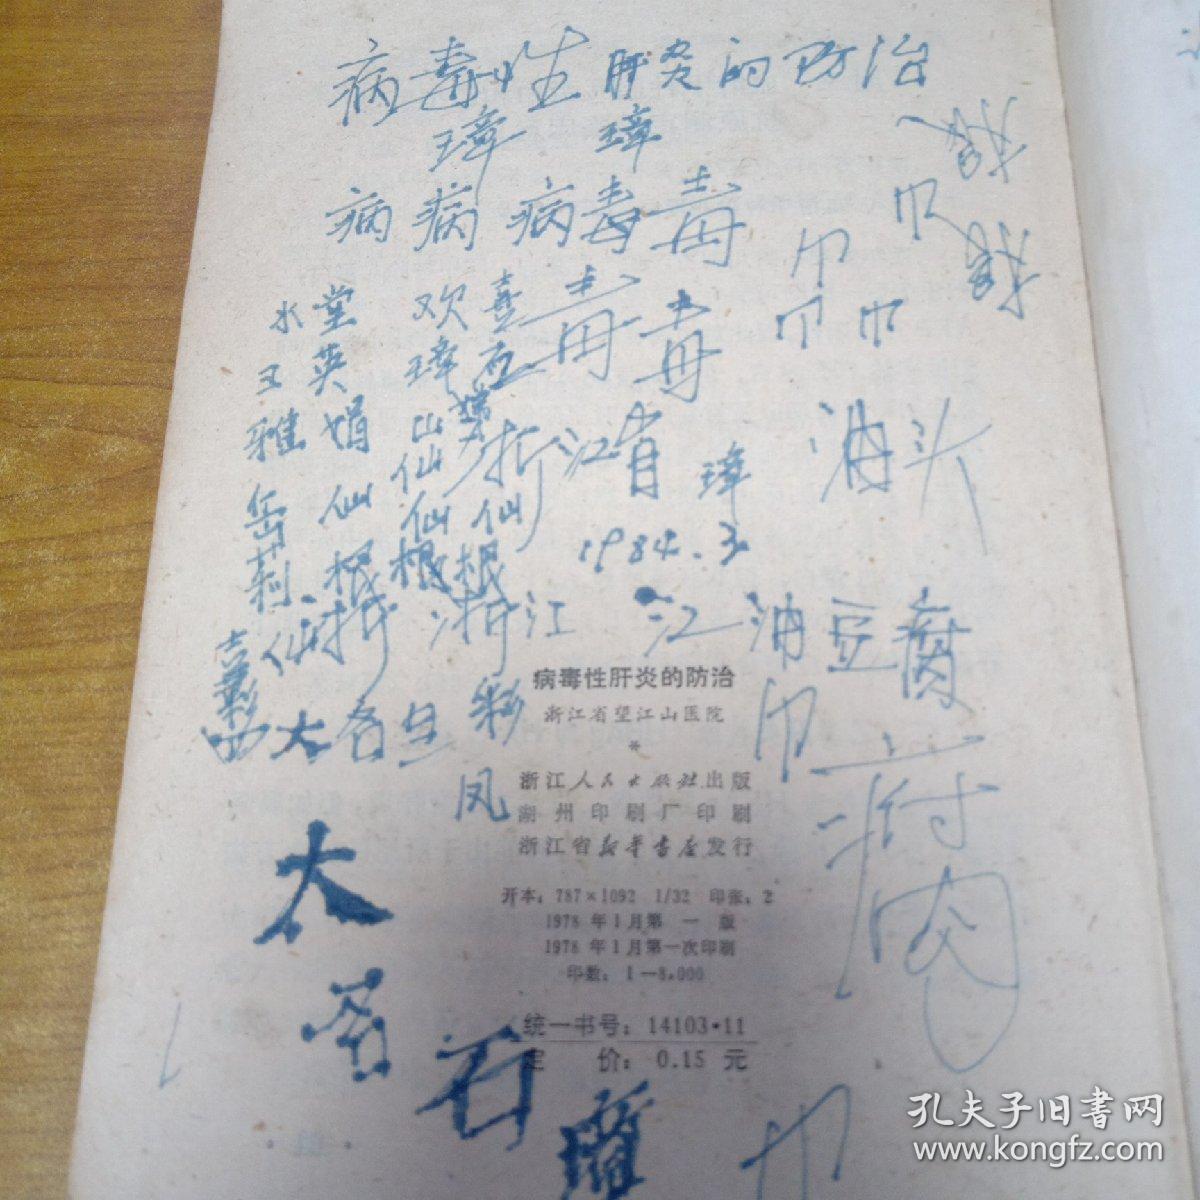 病毒性肝炎的防治
璋 璋
病病病毒毒
巾
巾
水堂 欢喜毒毒
巾巾
又英 璋
雅娟 山
油头
浙江省 璋
岳仙仙仙
1984.3
莉根根根
仙 浙江 江油豆腐
病毒性肝炎的防治
浙江省望江山医院
*
巾
大各 彩
凤
浙江人民出版社出版
湖州印刷厂印刷
浙江省新华书店发行
腐
开本：787×1092 1/32 印张：2
1978年1月第一版
1978年1月第一次印刷
印数：1—8,000
大
统一书号：14103·11
定 价：0.15 元
石
巾
孔夫子旧书网
www.kongfz.com